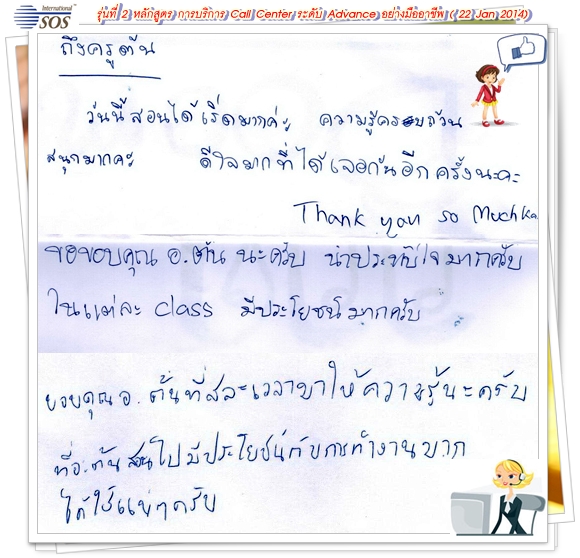 International
SOS
รุ่นที่ 2 หลักสูตร การบริการ Call Center ระดับ Advance อย่างมืออาชีพ ( 22 Jan 2014)
ถึงครูต้น
วันนี้สอนได้เริ่ดมากค่ะ ความรู้ครอบถ้วน
สนุกมากคะ ดีใจมากที่ได้เจอกันอีกครั้งนะคะ
Thank you so Much ka
ขอขอบคุณ อ.ต้น นะครับ น่าประทับใจมากครับ
ในแต่ละ class มีประโยชน์มากครับ
ขอบคุณ อ. ต้นที่สละเวลามาให้ความรู้นะครับ
ที่อ.ต้นสอนไปมีประโยชน์กับการทำงานมาก
ได้ใช้แน่ๆครับ